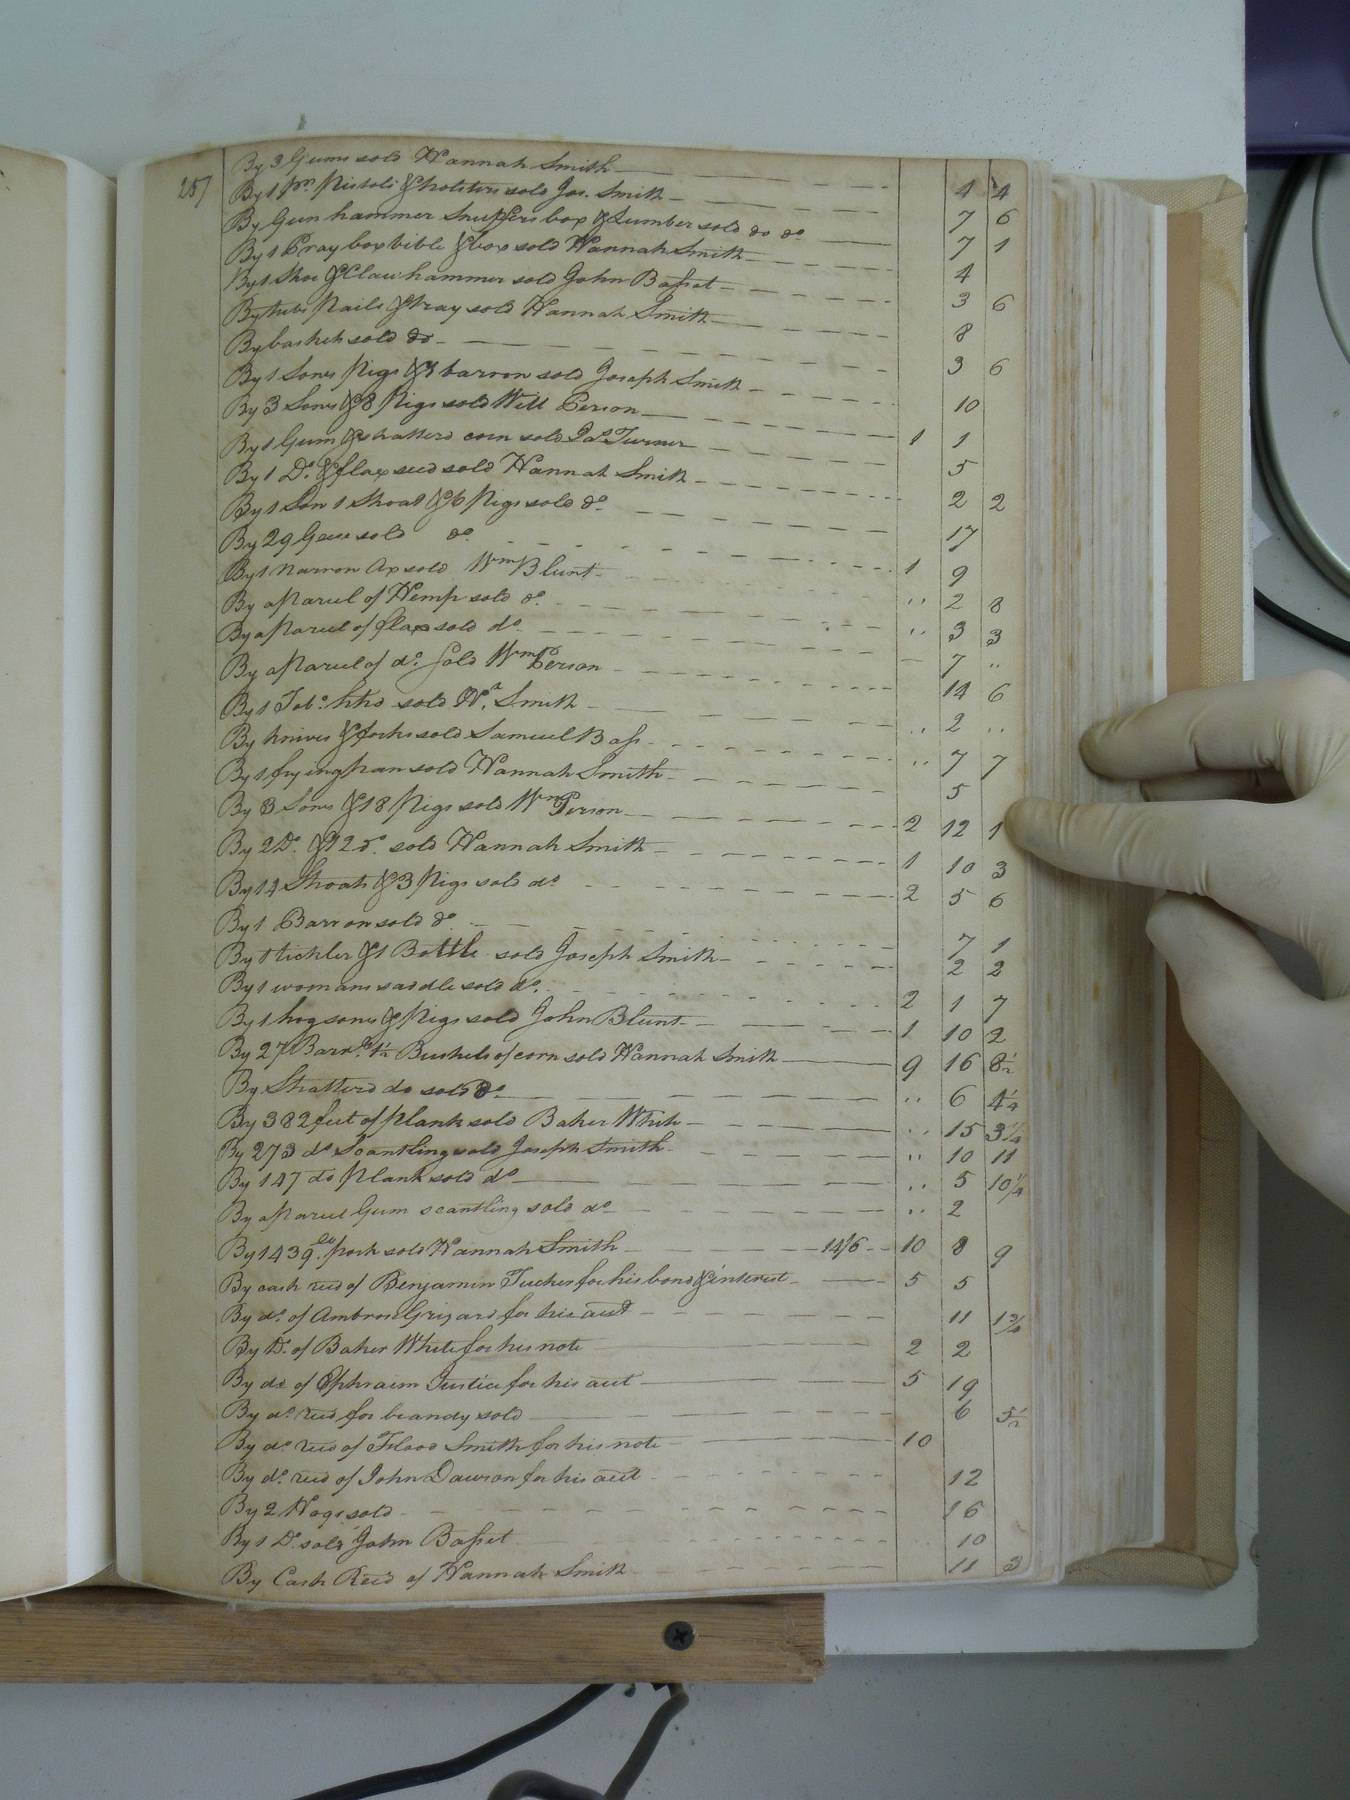 257
By 3 Gums sold Hannah Smith 4 4
By 1 pr. Pistols & holsters sold Jos. Smith 7 6
By Gun hammer Snuffers box & Lumber sold do do 7 1
By 1 Pray box bible & box sold Hannah Smith 4
By 1 Shoe & Claw hammer sold John Basset 3 6
By tubs Pails & tray sold Hannah Smith 8
By baskets sold do 3 6
By 1 Sows Pigs & 1 barrow sold Joseph Smith 10
By 3 Sows & 8 Pigs sold Will Person 1 1
By 1 Gum & shatterd corn sold Turner 5
By 1 Do. & flax seed sold Hannah Smith 2 2
By 1 Sow 1 Shoat & 6 Pigs sold do 17
By 29 Geese sold do 1 9
By 1 narrow Ax sold Wm Blunt " 2 8
By a Parcel of Hemp sold do. " 3 3
By a Parcel of flax sold do 7 "
By a Parcel of do. Sold Wm Person 14 6
By 1 Tobo. hhd sold Hh. Smith " 2 "
By knives & forks sold Samuel Bass " 7 7
By 1 frying pan sold Hannah Smith 5
By 3 Sows & 18 Pigs sold Wm Person 2 12 1
By 2 Do. & 12 do. sold Hannah Smith 1 10 3
By 14 Shoats & 3 Pigs sold do 2 5 6
By 1 Barrow sold do 7 1
By 1 tickler & 1 Bottle sold Joseph Smith 2 2
By 1 womans saddle sold do. 2 1 7
By 1 hog sows & Pigs sold John Blunt 1 10 2
By 27 Barrs. 1½ Bushels of corn sold Hannah Smith 9 16 8½
By Shatterd do sold do " 6 4¼
By 382 feet of Plank sold Baker White " 15 3¼
By 273 do Scantling sold Joseph Smith " 10 11
By 147 do Plank sold do " 5 10¼
By a Parcel Gum scantling sold do " 2
By 1439 lb pork sold Hannah Smith 14/6 10 8 9
By cash recd of Benjamin Tucker for his bond & interest 5 5
By do. of Ambrose Grizard for his acct 11 1¾
By Do. of Baker White for his note 2 2
By do of Ephraim Justice for his acct 5 19
By do. recd for brandy sold 6 5½
By do recd of Flood Smith for his note 10
By do. recd of John Dawson for his acct 12
By 2 Hogs sold 16
By 1 Do sold John Basset 10
By Cash Recd of Hannah Smith 11 3